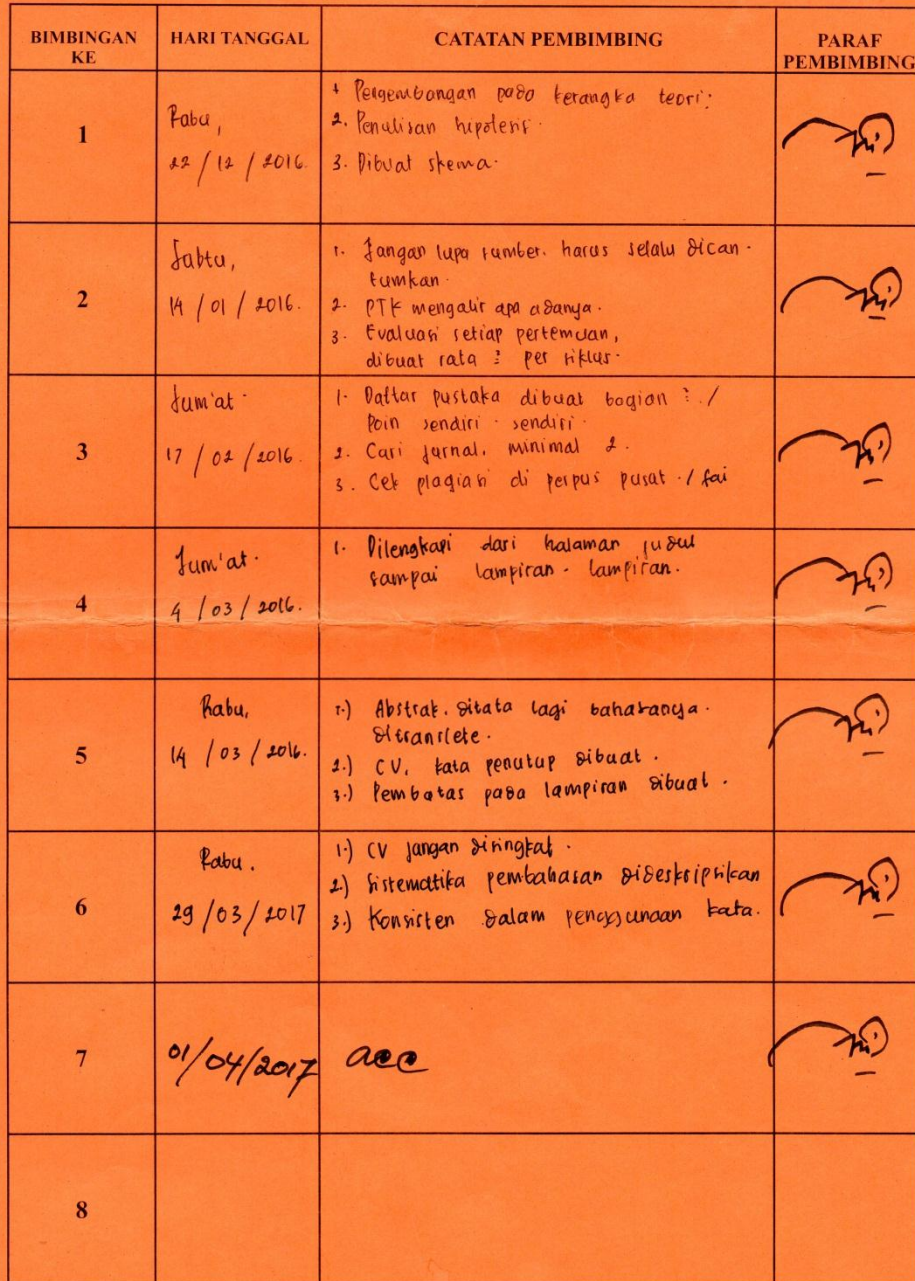 BIMBINGAN KE
HARI TANGGAL
CATATAN PEMBIMBING
PARAF PEMBIMBING
1
Rabu,
22 / 12 / 2016.
1. Pengembangan pada kerangka teori.
2. Penulisan hipotesis.
3. Dibuat skema.
2
Sabtu,
14 / 01 / 2016.
1. Jangan lupa sumber. harus selalu dican-
tumkan.
2. PTK mengalir apa adanya.
3. Evaluasi setiap pertemuan,
dibuat rata2 per siklus.
3
Jum'at.
17 / 02 / 2016.
1. Daftar pustaka dibuat bagian2 /
Poin sendiri - sendiri.
2. Cari jurnal. minimal 2.
3. Cek plagiasi di perpus pusat. / fai
4
Jum'at.
4 / 03 / 2016.
1. Dilengkapi dari halaman judul
sampai lampiran - lampiran.
5
Rabu,
14 / 03 / 2016.
1.) Abstrak. ditata lagi bahasanya.
ditranslete.
2.) CV. kata penutup dibuat.
3.) Pembatas pada lampiran dibuat.
6
Rabu.
29 / 03 / 2017
1.) CV jangan disingkat.
2.) Sistematika pembahasan dideskripsikan
3.) Konsisten dalam penggunaan kata.
7
01/04/2017
acc
8